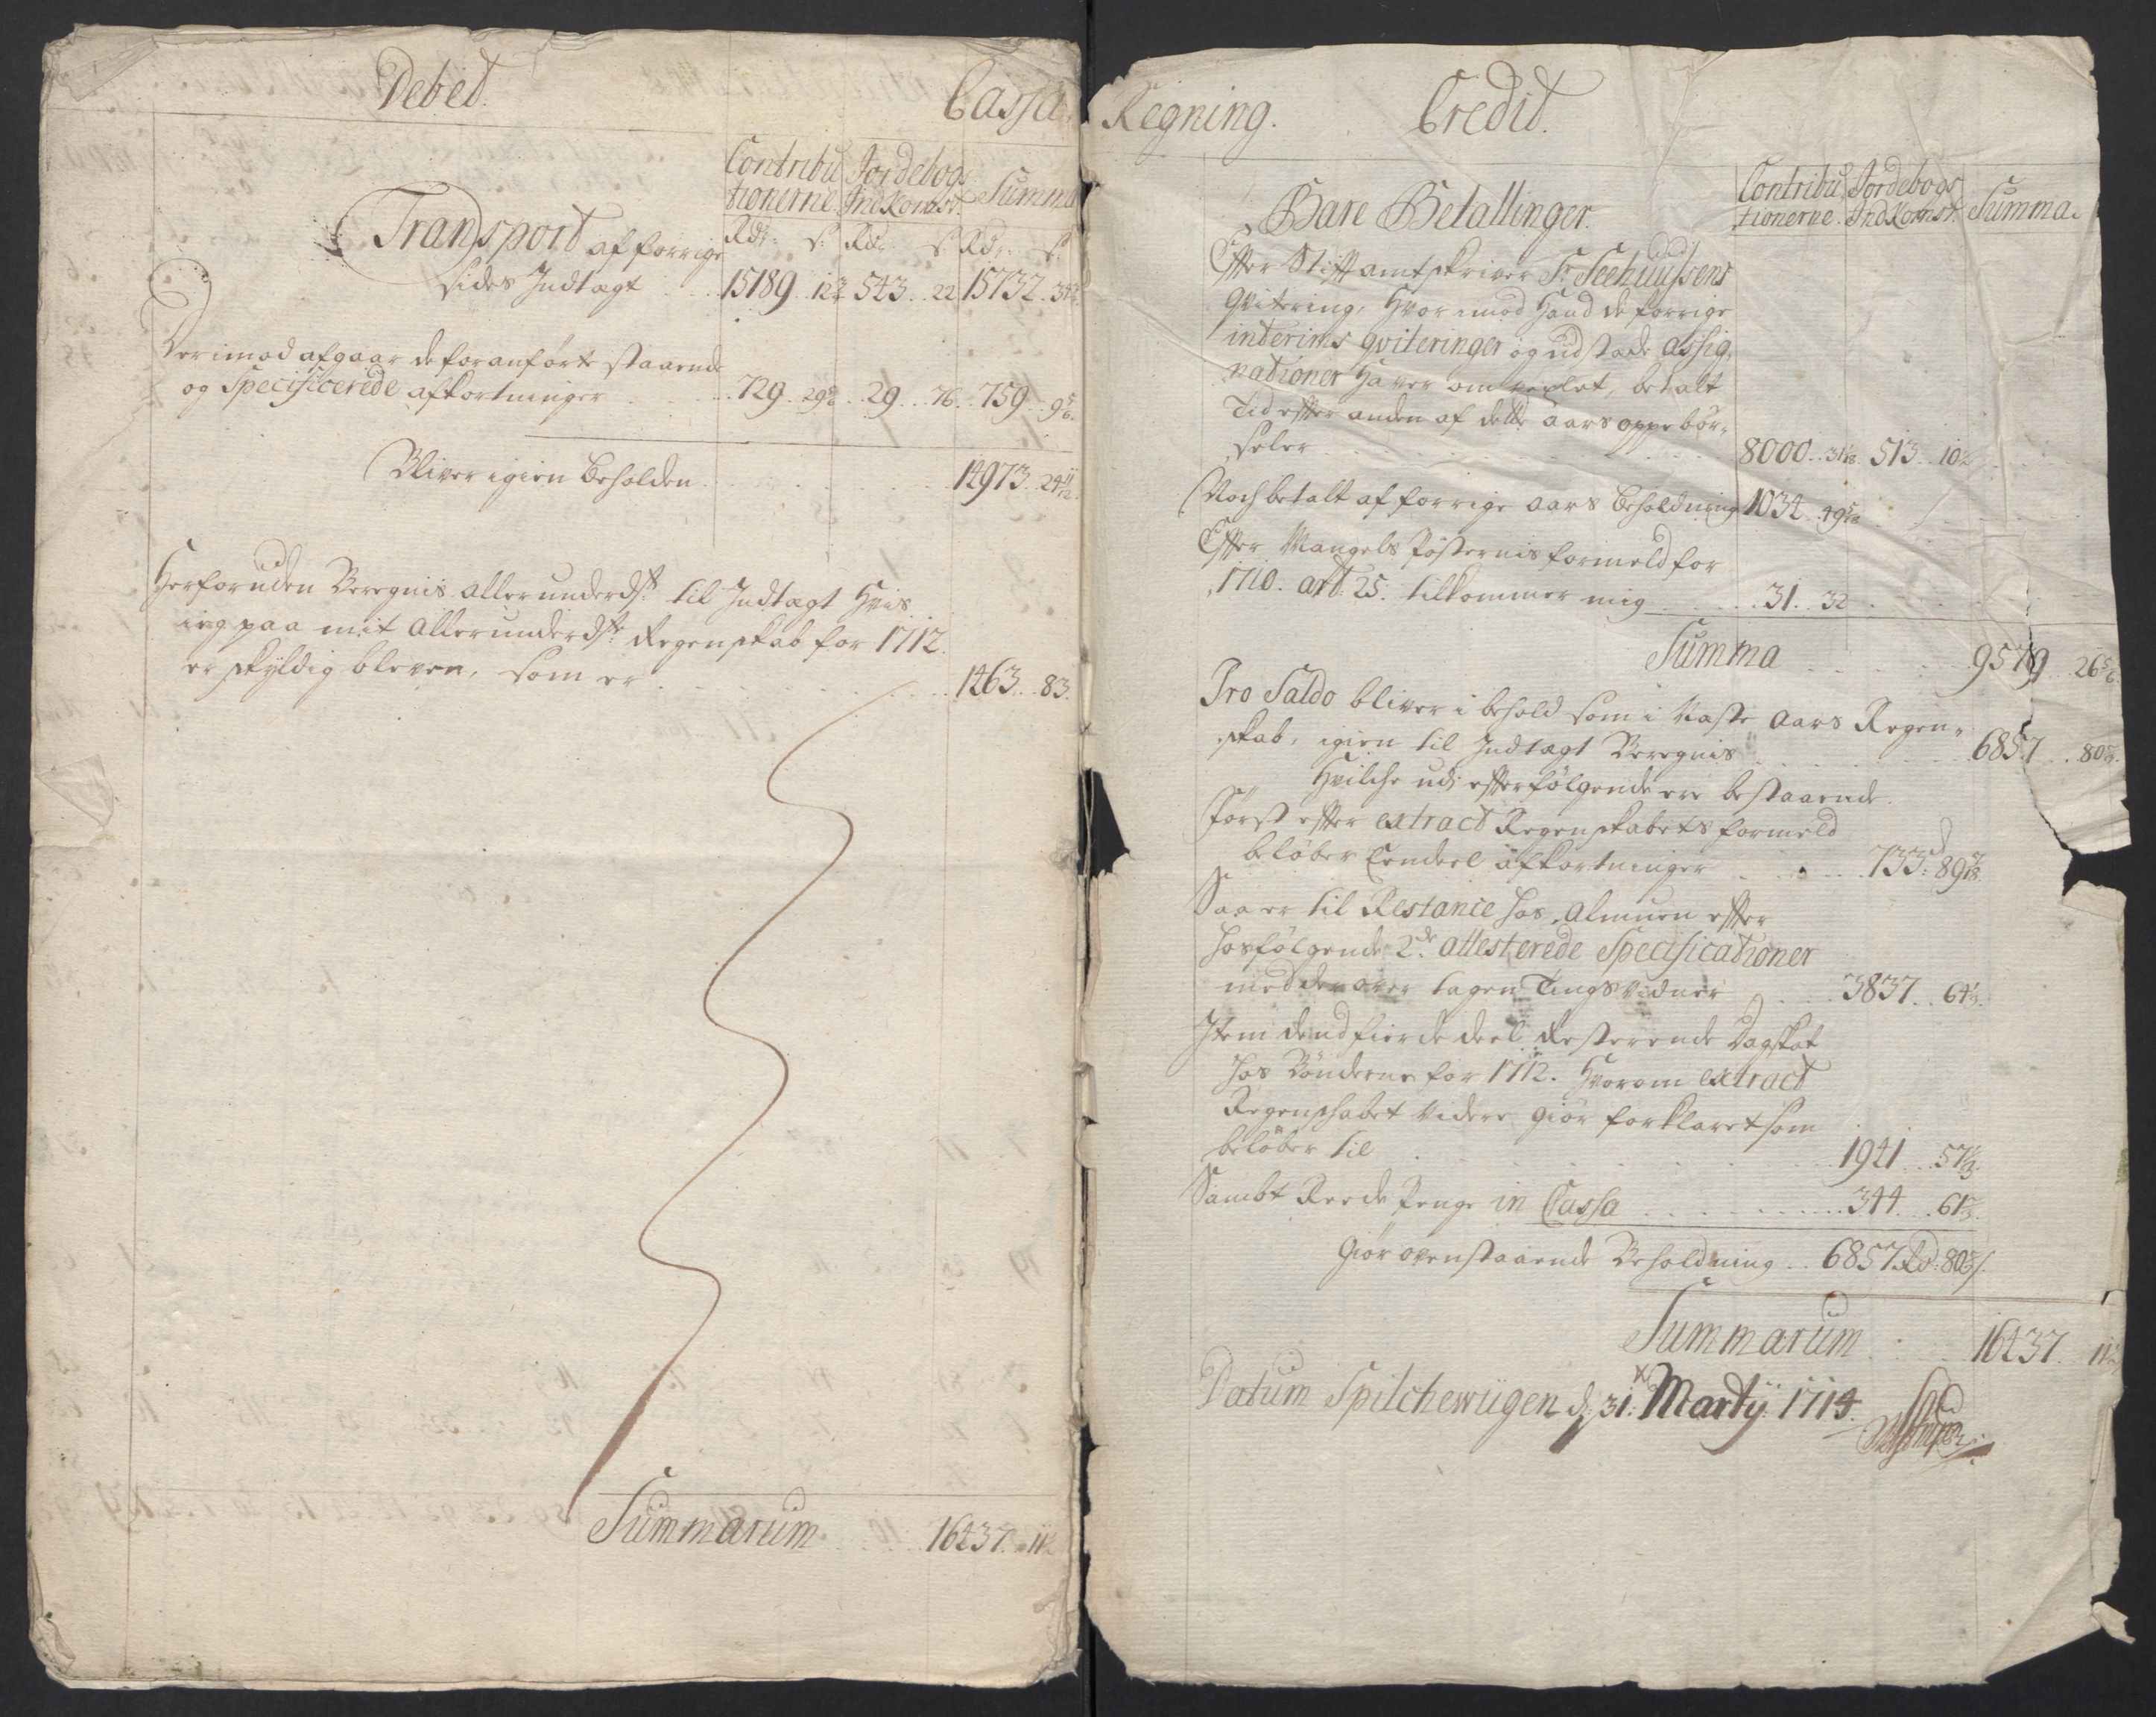 Debet.
Cassa
Contribu Jordebogs Summa
tionerne. Indkomst.
Rdr: s: Rdr: s Rdr: s:
Transport af forrige
sides Indtægt 15189 .. 12 543 .. 22 15732 .
Derimod afgaar de foranførte staaende
og Specificerede afkortninger 729 . 29 . 29 .. 76 . 759 .. 9 5/6.
Bliver igien beholden 14973 . 24 11/12.
Herforuden Beregnis allerunderdst: til Indtægt hvis
ieg paa mit allerunderdste Regenskab for 1712.
er skyldig bleven, som er 1463 .. 83.
Summarum 16437 . 11
Regning. Credit.
Contribu Jordebogs Summa.
tionerne. Indkomst.
Bare Betallinger.
Efter Stiftamtskriver Sr. Seehuusens
qvitering, hvorimod hand de forrige
interims qviteringer og udstæde assig,
nationer haver omvexlet, betalt
Tid efter anden af dette aars oppebør,
seler 8000 .. 31 513 . 10
Noch betalt af forrige aars beholdning 1034 . 49
Efter Mangels Posternis formeld for
1710. art: 25. tilkommer mig 31 . 32
Summa 9579 .. 26 5/6
Pro Saldo bliver i behold som i Næste aars Regen,
skab, igien til Indtægt Beregnis 6857 . 80
Hvilche udi efterfølgende ere bestaaende.
Først efter extract Regenskabets formeld
beløber Eendeel afkortninger 733: 89
Saa er til Restance hos Almuen efter
hosfølgende 2de attesterede Specificationer
med derover tagen Tingsvidner 3837 . 64
Item dend fierde deel Resterende Dagskat
hos Bønderne for 1712. hvorom extract
Regenschabet videre giør forklaret som
beløber til 1941 .. 57
Sambt Reede Penge in Cassa 344 . 61
Giør ovenstaaende Beholdning .. 6857 Rdr: 80 s.
Summarum 16437 11
Datum Spilchewiigen d. 31: Martij 1714.